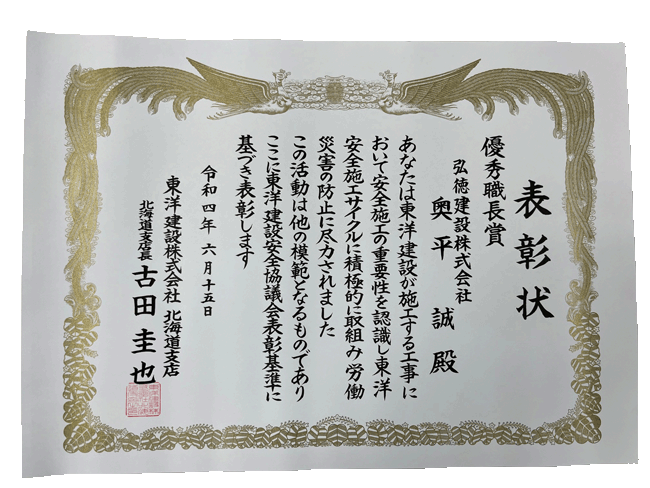 表彰状
優秀職長賞
弘徳建設株式会社
奥平 誠 殿
あなたは東洋建設が施工する工事に
おいて安全施工の重要性を認識し東洋
安全施工サイクルに積極的に取組み労働
災害の防止に尽力されました
この活動は他の模範となるものであり
ここに東洋建設安全協議会表彰基準に
基づき表彰します
令和四年 六月十五日
東洋建設株式会社 北海道支店
北海道支店長 古田 圭也